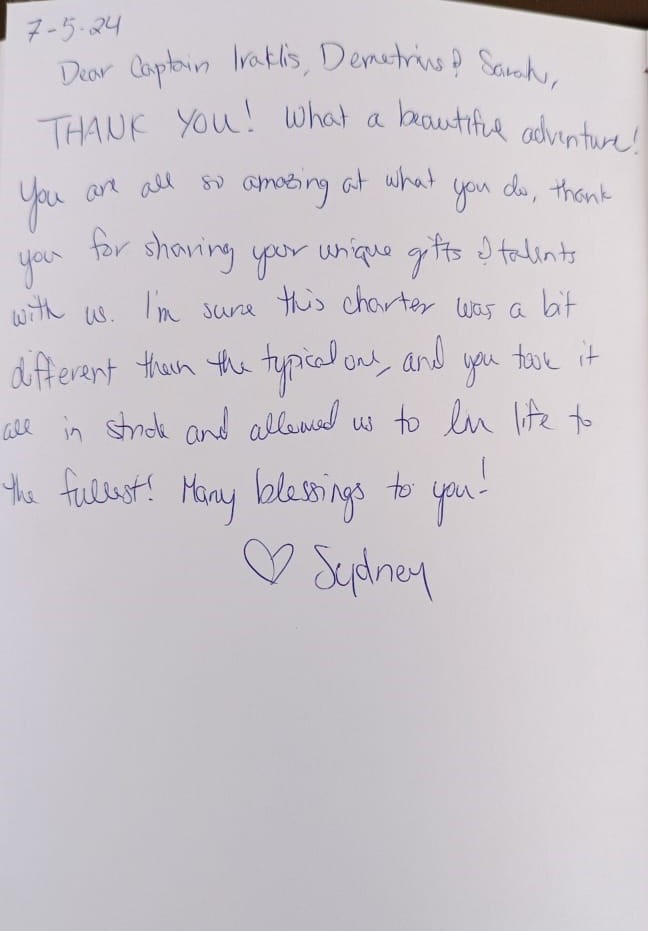 7-5-24
Dear Captain Iraklis, Demetrius & Sarah,
THANK YOU! What a beautiful adventure!
You are all so amazing at what you do, thank
you for sharing your unique gifts & talents
with us. I'm sure this charter was a bit
different than the typical one, and you took it
all in stride and allowed us to live life to
the fullest! Many blessings to you!
♡ Sydney